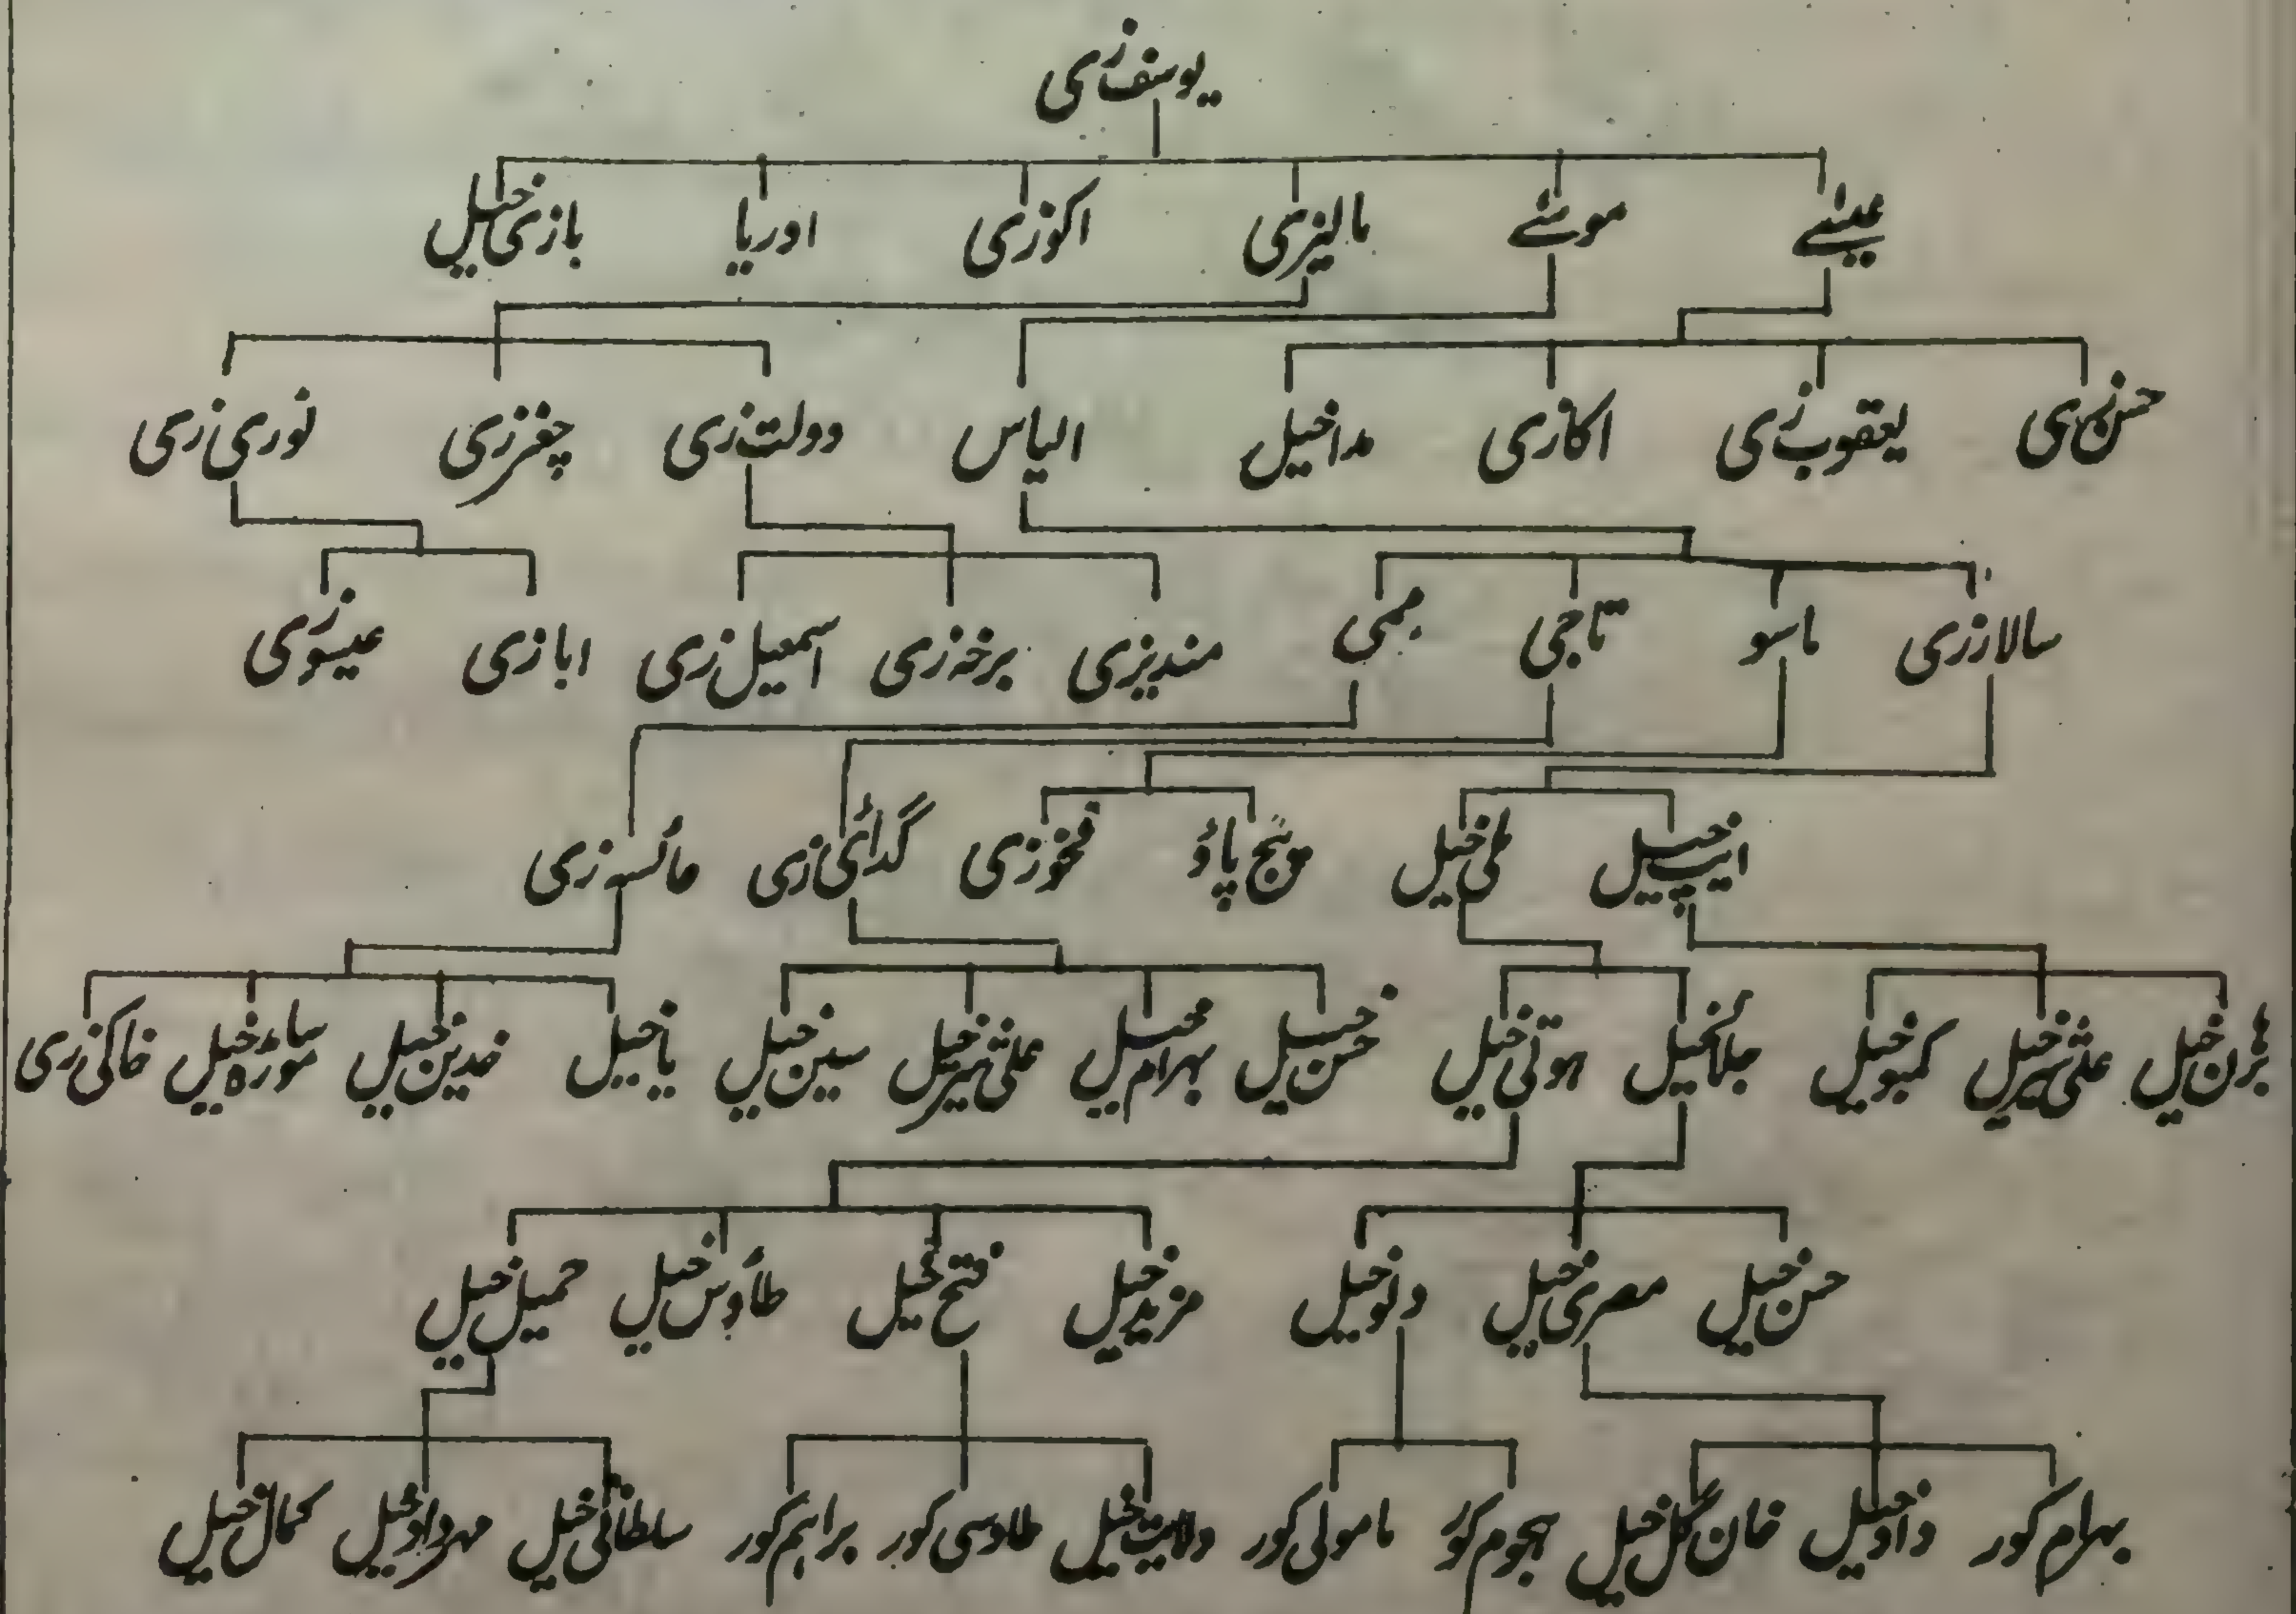 یوسف زی
عیسے موسے مالیزی اکوزی اوریا بازی خیل
حسن زی یعقوب زی اکازی مداخیل الیاس دولت زی چغرزی نوری زی
سالارزی ماسو تاجی ممی مندیزی برخہ زی اسمعیل زی ابازی عیسوزی
ایپ خیل ملی خیل مونج پاؤ فخوزی گدائی زی عائسہ زی
علی شیر خیل کمبو خیل ہوتی خیل حسن خیل بہرام خیل علی شیر خیل سین خیل پاخیل خدین خیل خاکی زی
حسن خیل مصری خیل دنو خیل مزید خیل فتح خیل طاؤس خیل جمیل خیل
بہرام کور داؤد خیل خان گل خیل ہجوم کور مامولی کور ولایت خیل طاوسی کور براہم کور سلطانی خیل مہرداد خیل کمال خیل